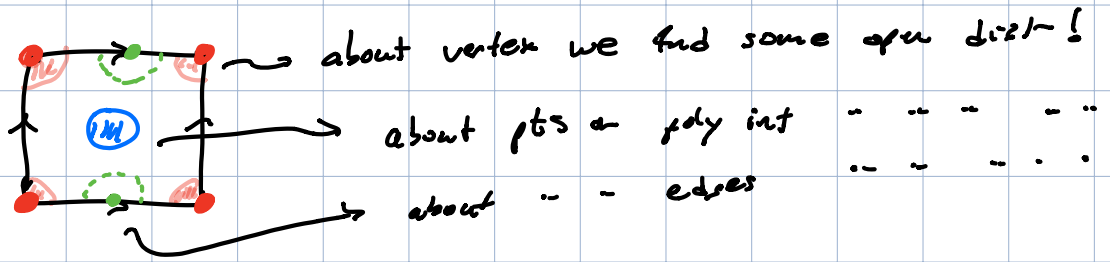 about vertex we find some open disk!
about pts on poly int " " " " "
about " " edges " " " " "